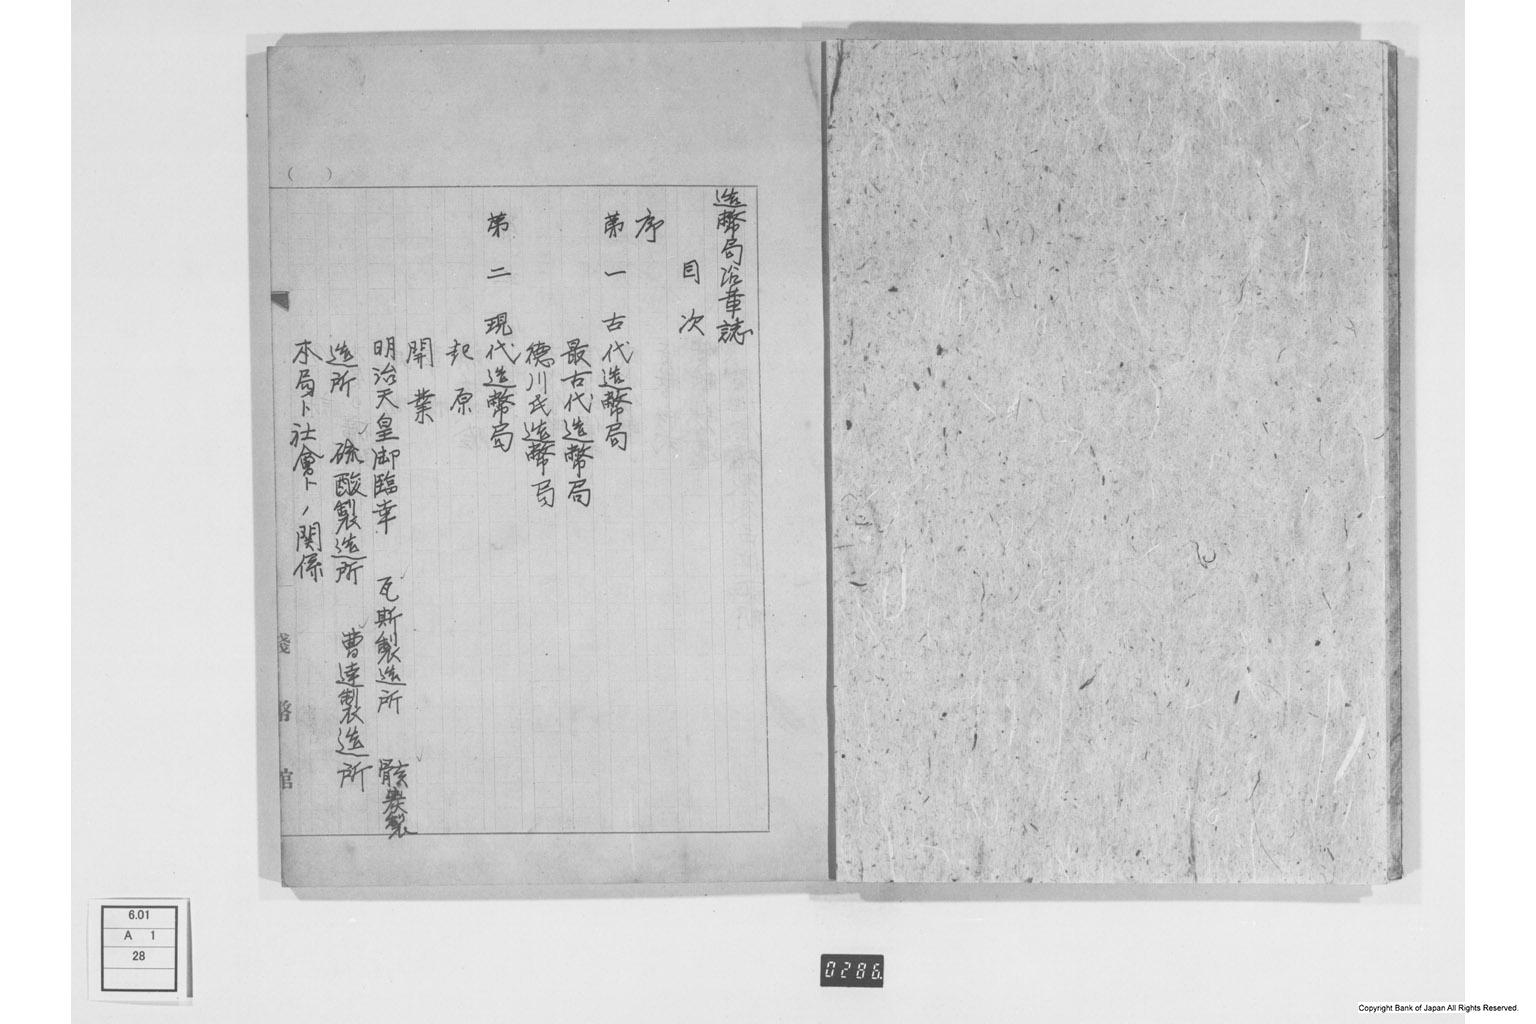 造幣局沿革誌
目次
序
第一 古代造幣局
最古代造幣局
德川氏造幣局
第二 現代造幣局
起原
開業
明治天皇御臨幸 瓦斯製造所 骸炭製
造所 硫酸製造所 曹達製造所
本局ト社會トノ関係
( )
錢幣館
6.01
A 1
28
0286
Copyright Bank of Japan All Rights Reserved.